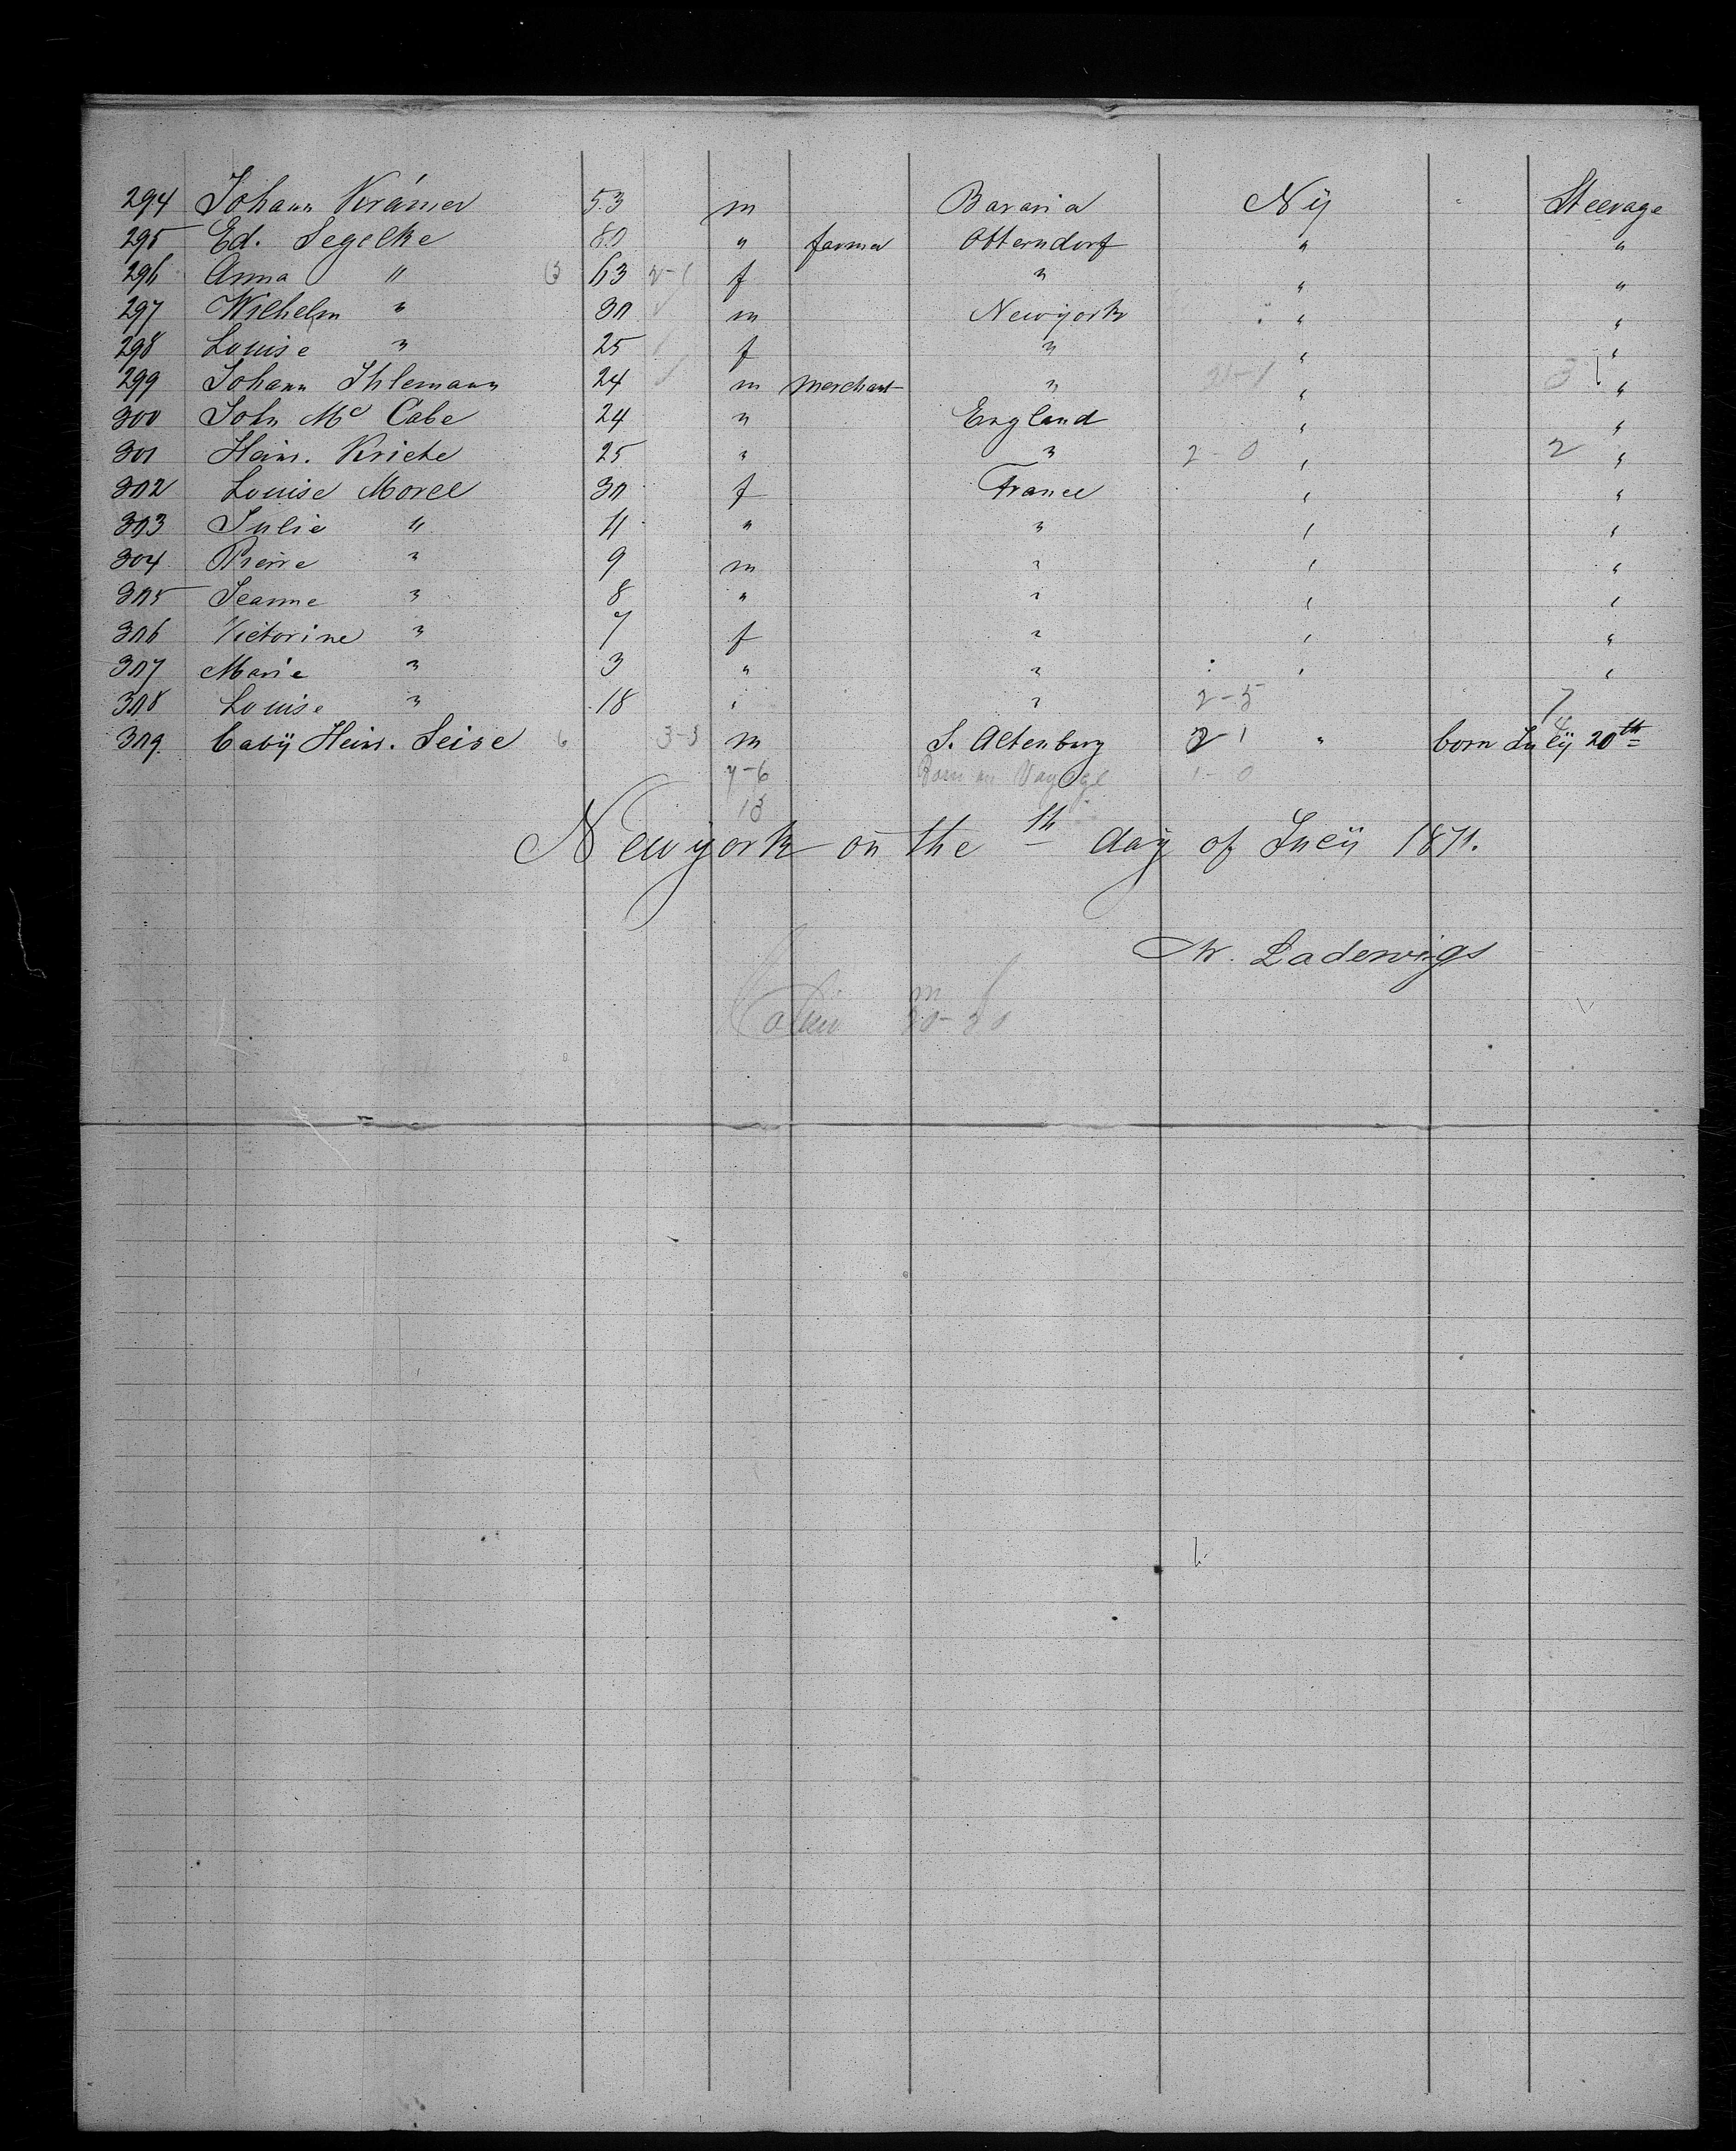 294 Johann Krámer 53 m Bavaria Ny " Steerage
295 Ed. Segelke 60 " farmer Otterndorf " "
296 Anna " 63 f " " "
297 Wilhelm " 30 m Newyork " "
298 Louise " 25 f " " "
299 Johann Ihlemann 24 m merchant " " "
300 John Mc Cabe 24 " England " "
301 Heinr. Kriete 25 " " 2-0 " 2 "
302 Louise Morel 30 f France " "
303 Julie " 11 " " " "
304 Pierre " 9 m " " "
305 Jeanne " 8 " " " "
306 Victorine " 7 f " " "
307 Marie " 3 " " " "
308 Louise " 18 " " 2-5 7
309 baby Heinr. Seise 6 3-3 m S. Altenburg 1 " born July 20th
7-6 Born on Voyage 1-0
13
Newyork on the th day of July 1871.
Ladewigs
m f
30-30